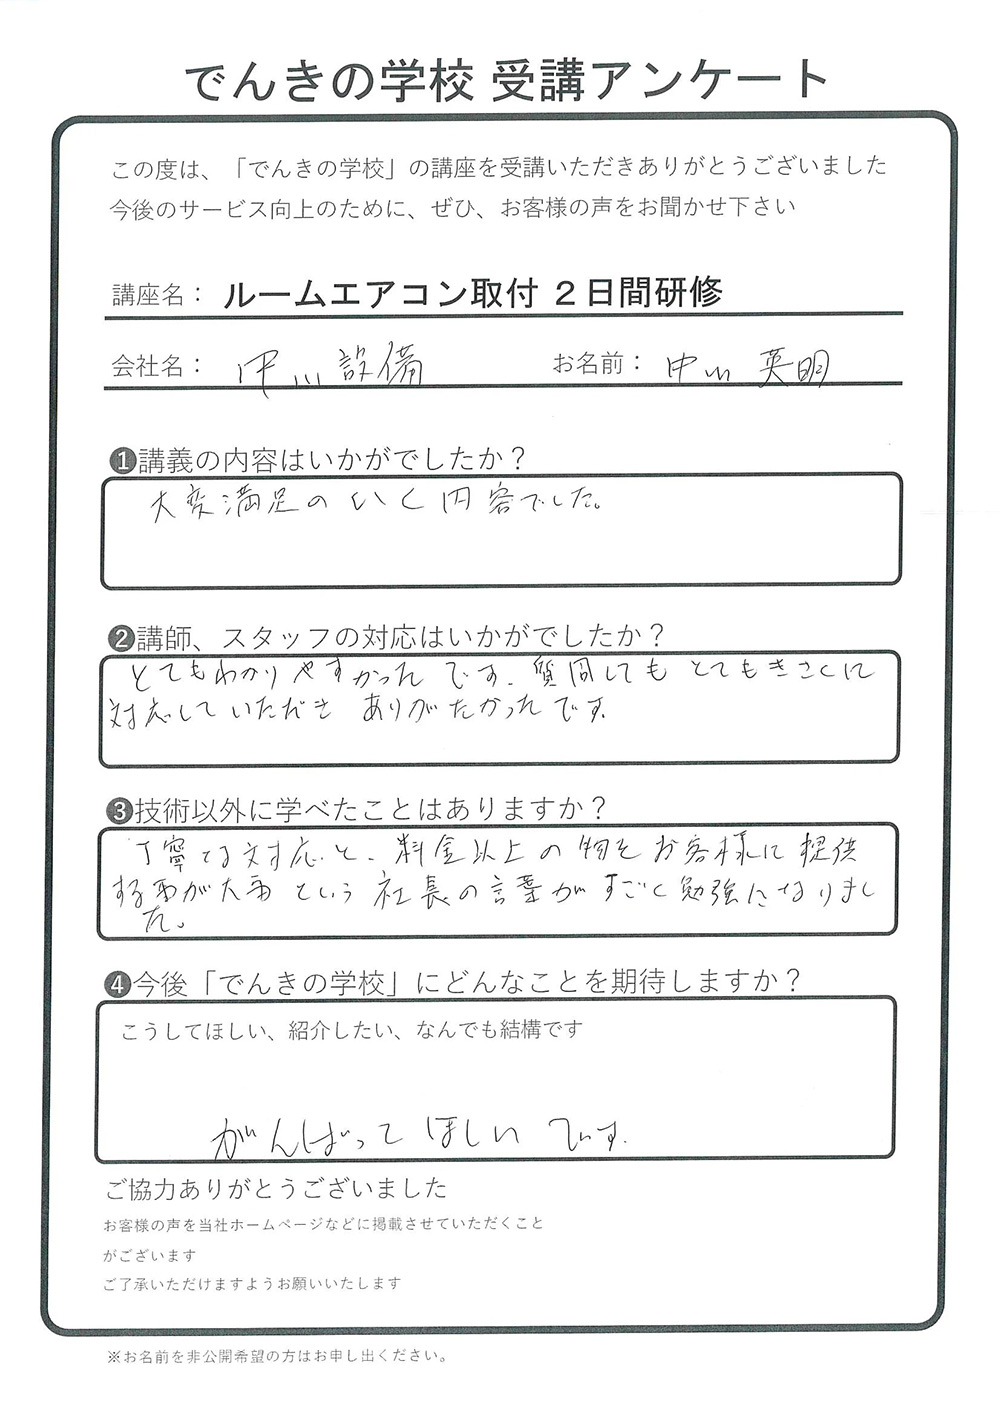 でんきの学校 受講アンケート
この度は、「でんきの学校」の講座を受講いただきありがとうございました
今後のサービス向上のために、ぜひ、お客様の声をお聞かせ下さい
講座名： ルームエアコン取付 2日間研修
会社名： 中川設備 お名前： 中川 英明
❶講義の内容はいかがでしたか？
大変満足のいく内容でした。
❷講師、スタッフの対応はいかがでしたか？
とてもわかりやすかったです。質問してもとてもきさくに
対応していただき ありがたかったです。
❸技術以外に学べたことはありますか？
丁寧な対応と、料金以上の物をお客様に提供
する事が大事という社長の言葉がすごく勉強になりまし
た。
❹今後「でんきの学校」にどんなことを期待しますか？
こうしてほしい、紹介したい、なんでも結構です
がんばってほしいです。
ご協力ありがとうございました
お客様の声を当社ホームページなどに掲載させていただくこと
がございます
ご了承いただけますようお願いいたします
※お名前を非公開希望の方はお申し出ください。